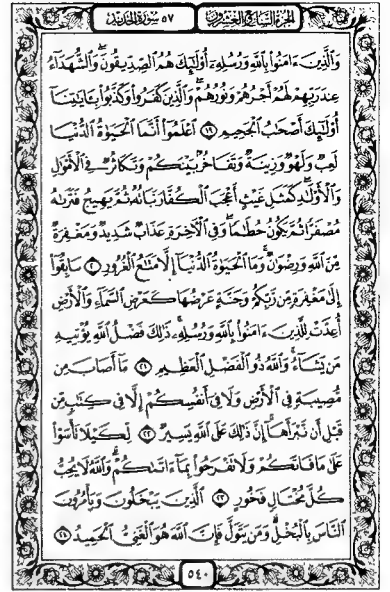 الجزء السابع والعشرون
٥٧ سورة الحديد
وَالَّذِينَ ءَامَنُوا بِاللَّهِ وَرُسُلِهِ أُولَٰئِكَ هُمُ الصِّدِّيقُونَ وَالشُّهَدَاءُ
عِندَ رَبِّهِمْ لَهُمْ أَجْرُهُمْ وَنُورُهُمْ وَالَّذِينَ كَفَرُوا وَكَذَّبُوا بِـَٔايَٰتِنَا
أُولَٰئِكَ أَصْحَٰبُ الْجَحِيمِ ١٩ اعْلَمُوا أَنَّمَا الْحَيَوٰةُ الدُّنْيَا
لَعِبٌ وَلَهْوٌ وَزِينَةٌ وَتَفَاخُرٌ بَيْنَكُمْ وَتَكَاثُرٌ فِي الْأَمْوَٰلِ
وَالْأَوْلَٰدِ كَمَثَلِ غَيْثٍ أَعْجَبَ الْكُفَّارَ نَبَاتُهُ ثُمَّ يَهِيجُ فَتَرَىٰهُ
مُصْفَرًّا ثُمَّ يَكُونُ حُطَٰمًا وَفِي الْأَخِرَةِ عَذَابٌ شَدِيدٌ وَمَغْفِرَةٌ
مِّنَ اللَّهِ وَرِضْوَٰنٌ وَمَا الْحَيَوٰةُ الدُّنْيَا إِلَّا مَتَٰعُ الْغُرُورِ ٢٠ سَابِقُوا
إِلَىٰ مَغْفِرَةٍ مِّن رَّبِّكُمْ وَجَنَّةٍ عَرْضُهَا كَعَرْضِ السَّمَاءِ وَالْأَرْضِ
أُعِدَّتْ لِلَّذِينَ ءَامَنُوا بِاللَّهِ وَرُسُلِهِ ذَٰلِكَ فَضْلُ اللَّهِ يُؤْتِيهِ
مَن يَشَاءُ وَاللَّهُ ذُو الْفَضْلِ الْعَظِيمِ ٢١ مَا أَصَابَ مِن
مُّصِيبَةٍ فِي الْأَرْضِ وَلَا فِي أَنفُسِكُمْ إِلَّا فِي كِتَٰبٍ مِّن
قَبْلِ أَن نَّبْرَأَهَا إِنَّ ذَٰلِكَ عَلَى اللَّهِ يَسِيرٌ ٢٢ لِّكَيْلَا تَأْسَوْا
عَلَىٰ مَا فَاتَكُمْ وَلَا تَفْرَحُوا بِمَا ءَاتَىٰكُمْ وَاللَّهُ لَا يُحِبُّ
كُلَّ مُخْتَالٍ فَخُورٍ ٢٣ الَّذِينَ يَبْخَلُونَ وَيَأْمُرُونَ
النَّاسَ بِالْبُخْلِ وَمَن يَتَوَلَّ فَإِنَّ اللَّهَ هُوَ الْغَنِيُّ الْحَمِيدُ ٢٤
٥٤٠